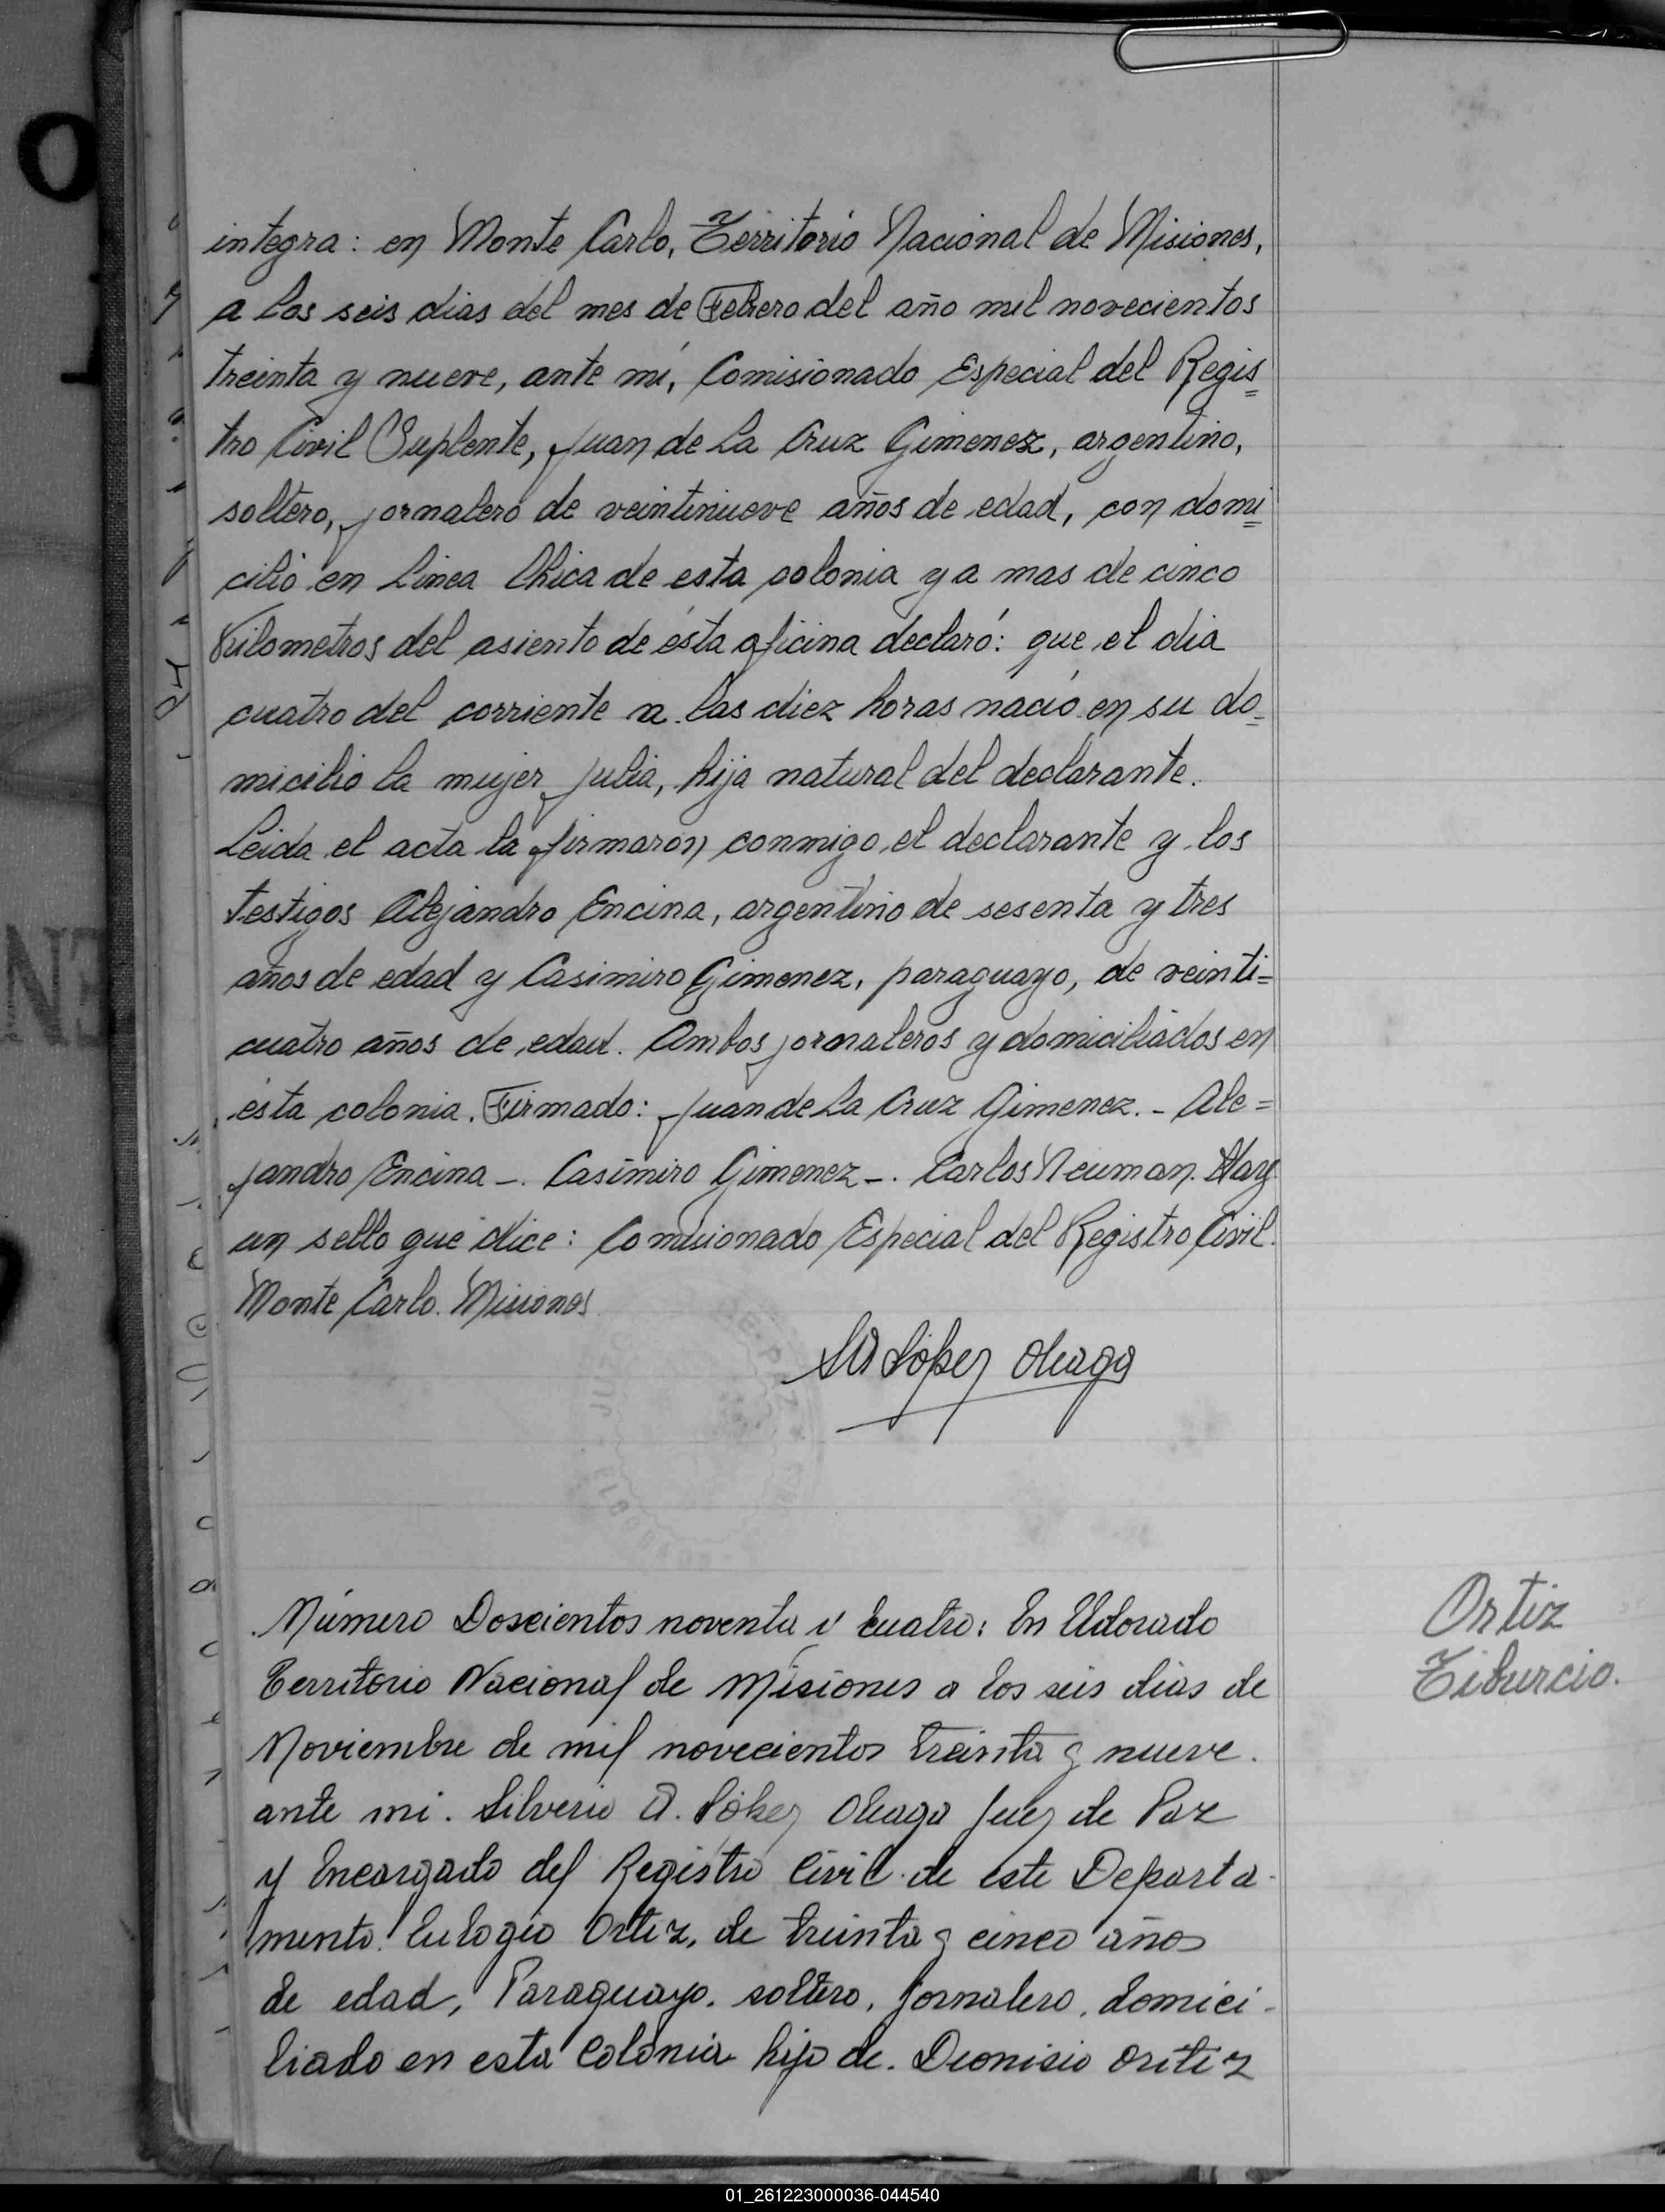 integra: en Monte Carlo, Territorio Nacional de Misiones,
a los seis dias del mes de Febrero del año mil novecientos
treinta y nueve, ante mí, Comisionado Especial del Regis=
tro Civil Suplente, Juan de La Cruz Gimenez, argentino,
soltero, jornalero de veintinueve años de edad, con domi=
cilio en Linea Chica de esta colonia y a mas de cinco
Kilometros del asiento de ésta oficina declaró: que el dia
cuatro del corriente a las diez horas nació en su do-
micilio la mujer Julia, hija natural del declarante.
Leida el acta la firmaron conmigo el declarante y los
testigos Alejandro Encina, argentino de sesenta y tres
años de edad y Casimiro Gimenez, paraguayo, de veinti=
cuatro años de edad. Ambos jornaleros y domiciliados en
ésta colonia. Firmado: Juan de La Cruz Gimenez. - Ale=
jandro Encina -. Casimiro Gimenez -. Carlos Neuman. Hay
un sello que dice: Comisionado Especial del Registro Civil.
Monte Carlo. Misiones
SA López Oleaga
Número Doscientos noventa y cuatro: En Eldorado
Territorio Nacional de Misiones a los seis dias de
Noviembre de mil novecientos treinta y nueve.
ante mi. Silverio A. López Oleaga Juez de Paz
y Encargado del Registro Civil de este Departa-
mento. Eulogio Ortiz, de treinta y cinco años
de edad, Paraguayo. soltero, jornalero, domici-
liado en esta Colonia hijo de. Dionisio Oritiz
Ortiz
Tiburcio.
01_261223000036-044540